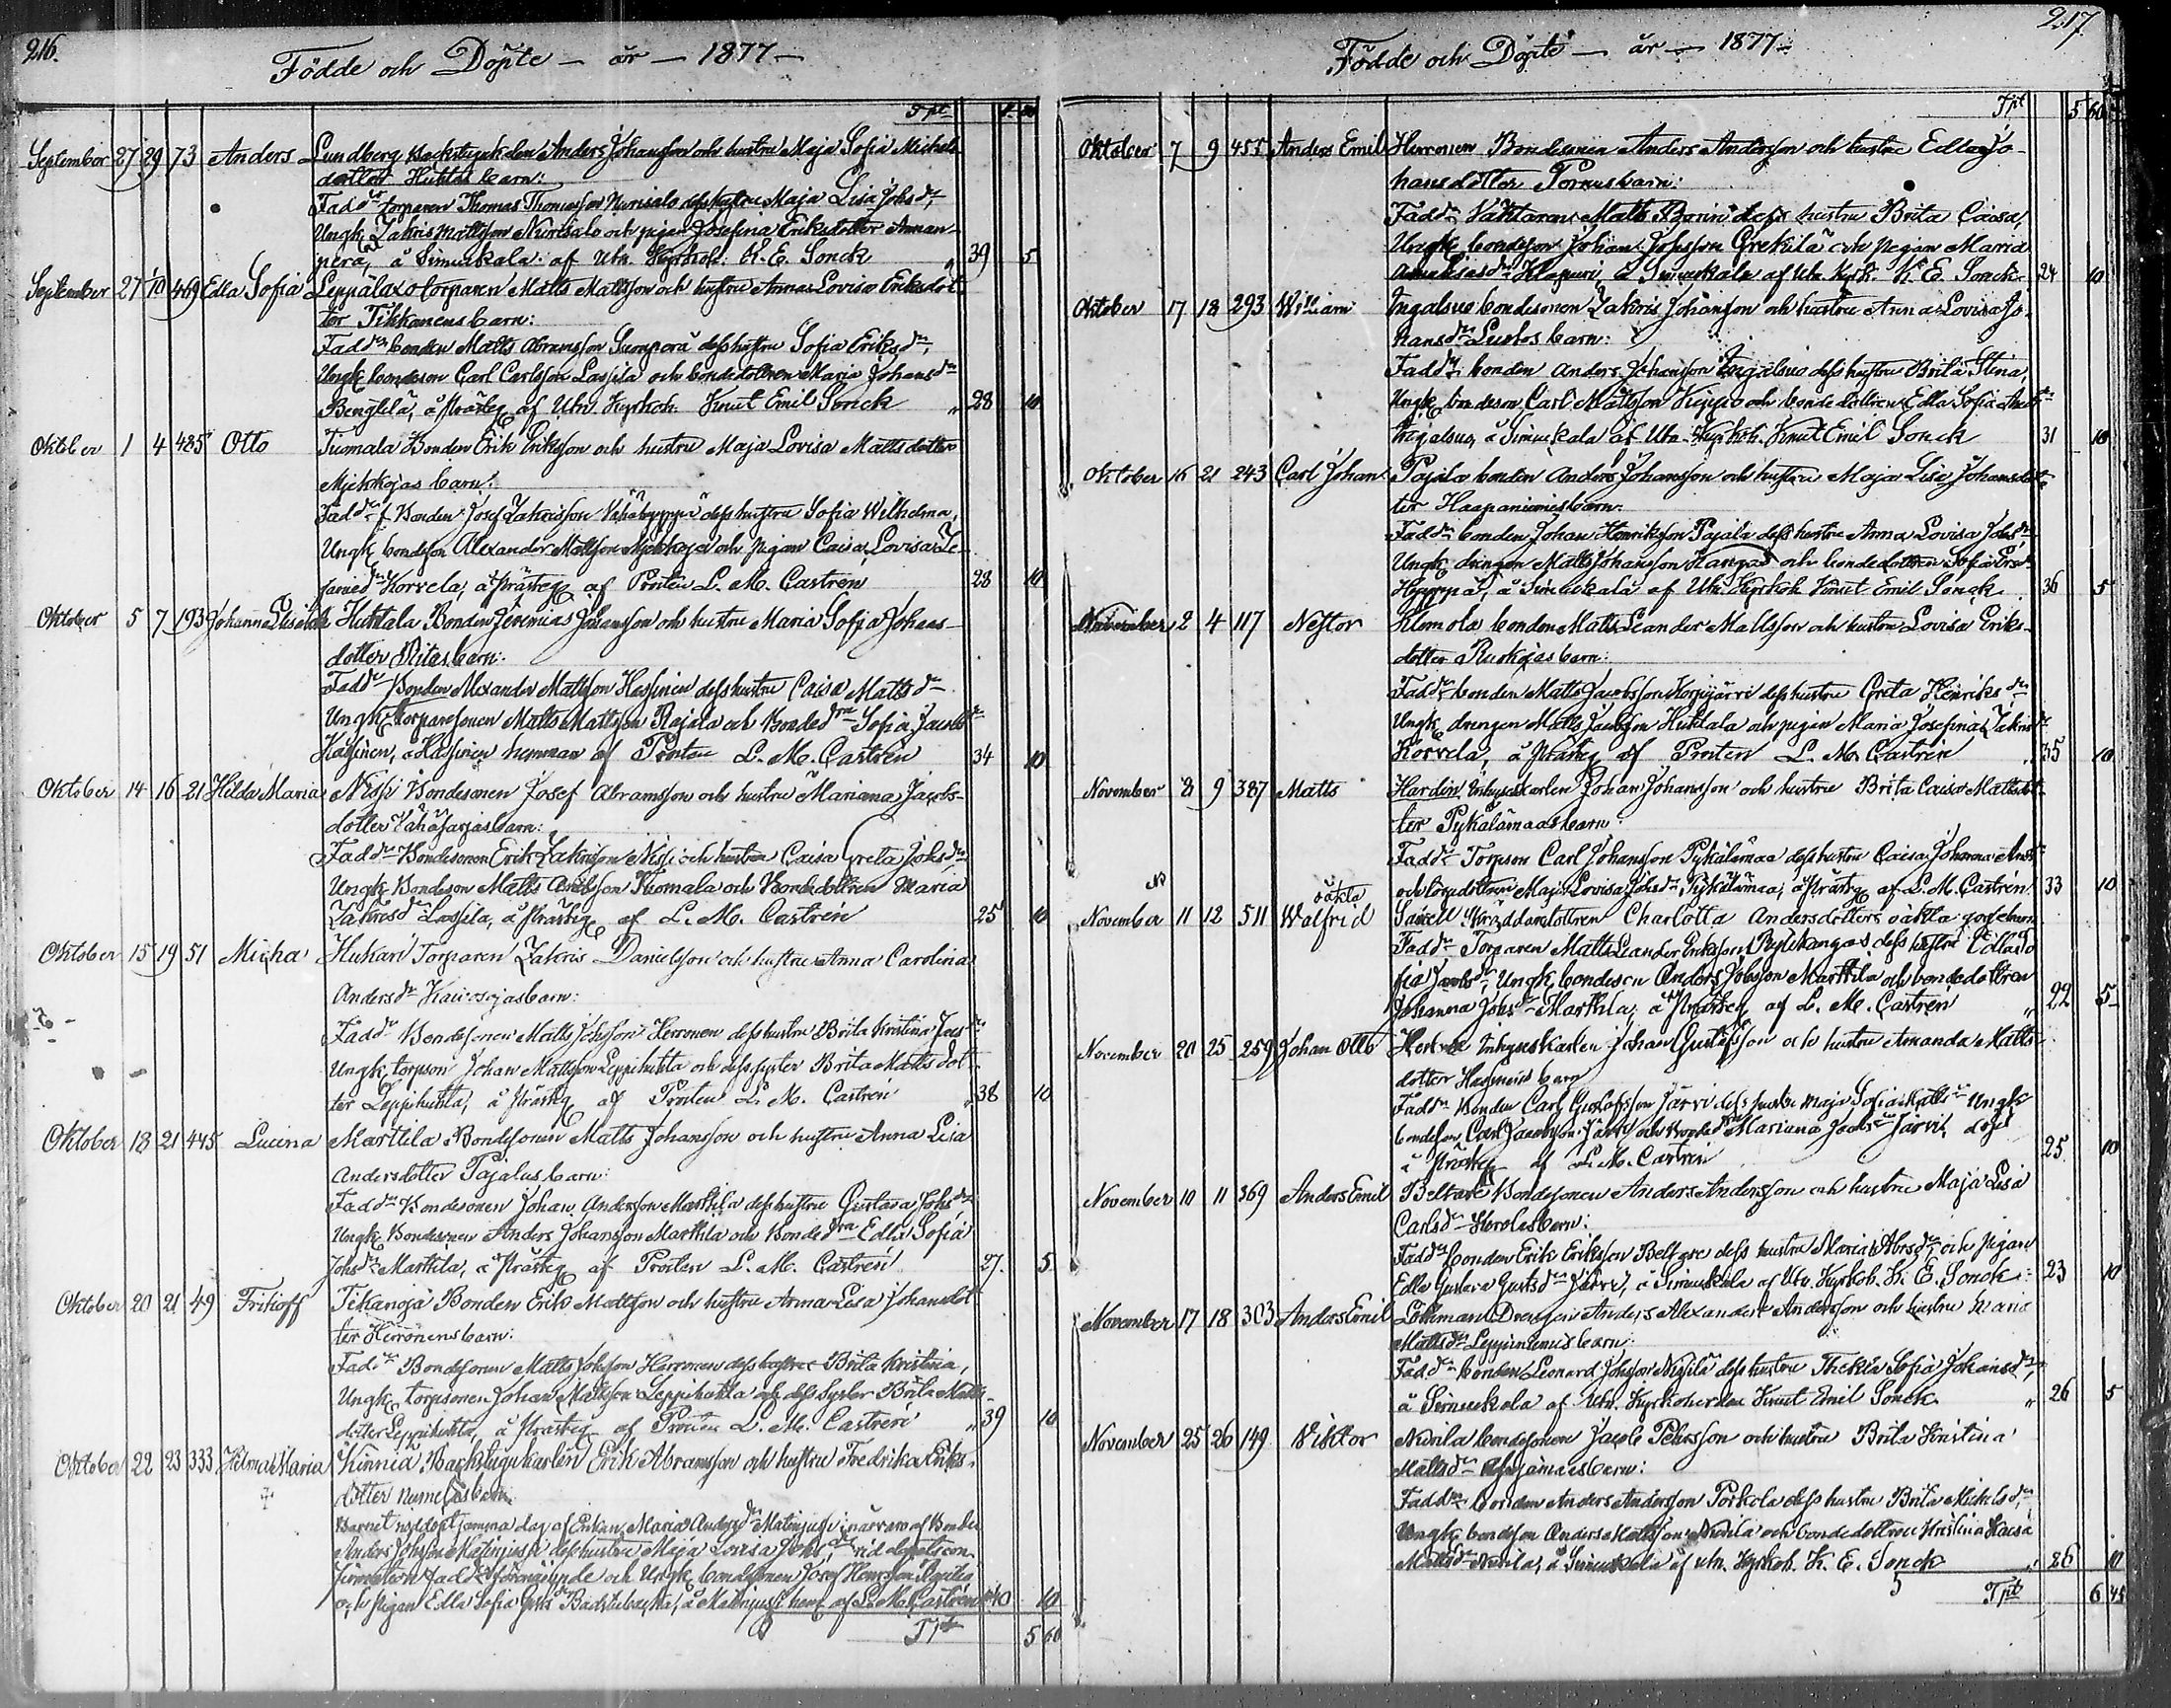 216.
Födde och Döpte — år — 1877 —
Tpt
September 27 29 73 Anders Lundberg Backstugukarlen Anders Johansson och hustru Maja Sofia Michels
dotter Huhtas barn:
Fadd. Torparen Thomas Thomasson Nurisalo dess hustru Maja Lisa Johsdr,
Ungk. Zakris Mattsson Nurisalo och pigan Josefina Eriksdotter Annan-
perä, å Simukala af Utn. Kyrkoh. K. E. Sonck 39 5
September 27 10 469 Edla Sofia Leppälaxo torparen Matts Mattsson och hustru Anna Lovisa Eriksdot
ter Tikkanens barn:
Fadd. bonden Matts Abramsson dess hustru Sofia Eriksdr,
Ungk. bondeson Carl Carlsson Lassila och bondedottren Maria Johansdr
Bengtilä, å Prästeg af Utn Kyrkoh. Knut Emil Sonck " 28 10
Oktober 1 4 485 Otto Tuomala Bonden Erik Eriksson och hustru Maja Lovisa Matts dotter
barn:
Fadd. Bonden Josef Zakrisson Vähähyyppä dess hustru Sofia Wilhelmina,
Ungk. bondeson Alexander Mattsson och pigan Caisa Lovisa
Korvela, å Prästeg af Prosten L. M. Castrén 28 10
Oktober 5 7 193 Johanna Huhtala Bonden Jeremias Johansson och hustru Maria Sofia Johans-
dotter Ritas barn:
Fadd. Bonden Alexander Mattsson Hassinen dess hustru Caisa Mattsdr
Ungk. Torparesonen Matts Mattsson Rajala och Bondedrn Sofia Jacobsdr
Hassinen, å Hassinen hemman af Prosten L. M. Castrén 34 10
Oktober 14 16 21 Hilda Maria Nissi Bondesonen Josef Abramsson och hustru Mariana Jacobs-
dotter Vähäsarjas barn:
Fadd. Bondesonen Erik Zakrisson Nissi och hustru Caisa Greta Johsdr
Ungk. Bondeson Matts Tuomala och Bondedottren Maria
Zakrisdr Lassila, å Prästeg af L. M. Castrén 25 10
Oktober 15 19 51 Micha Hukari Torparen Zakris Danielsson och hustru Anna Carolina
Andersdr barn:
Fadd. Bondesonen Matts Johsson Herronen dess hustru Brita Kristina
Ungk. torpson Johan Mattsson Leppihuhta och dess syster Brita Matts dot-
ter Leppihuhta, å Prästeg af Prosten L. M. Castrén " 38 10
Oktober 18 21 445 Lucina Marttila Bondesonen Matts Johansson och hustru Anna Lisa
Andersdotter Pajalas barn:
Fadd. Bondesonen Johan Andersson Marttila dess hustru Gustava Johsdr
Ungk. Bondesonen Anders Johansson Marttila och Bondedrn Edla Sofia
Johsdr Marttila, å Prästeg af Prosten L. M. Castrén 27. 5
Oktober 20 21 49 Frihioff Tikanoja Bonden Erik Mattsson och hustru Anna Lisa Johansdot
ter Herronens barn:
Fadd. Bondesonen Matts Johsson Herronen dess hustru Brita Kristina,
Ungk. torpsonen Johan Mattsson Leppihuhta och dess Syster Brita Matts
dotter Leppihuhta, å Prästeg af Prosten L. M. Castrén " 39 10
Oktober 22 23 333 Hilma Maria Kinnia Backstugukarlen Erik Abramsson och hustru Fredrika Eriks-
dotter barn
Barnet nöddöpt samma dag af Enkan Maria Andersdr Matinjussi i närvaro af Bonden
Anders Johsson Matinjussi dess hustru Maja Lovisa vid dopets con-
firmation Fadd. och Ungk. bondesonen Josef Henrsson
och pigan Edla Sofia å Matinjussi hem. af L. M. Castrén 40 10
Tpt 5 60
217.
Födde och Döpte — år — 1877 —
Tpt 5 60
Oktober 7 9 455 Anders Emil Herronen Bondesonen Anders Andersson och hustru Edla Jo-
hans dotter barn:
Fadd. Matts dess hustru Brita Caisa,
Ungk. bondeson Johan Johsson Grekilä och pigan Maria
å Simukala af Utn Kyrk. K. E. Sonck 24 10
Oktober 17 18 293 William Ingalsuo bondesonen Zakris Johansson och hustru Anna Lovisa Jo-
hansdr Luotos barn:
Fadd. bonden Anders Johansson Ingalsuo dess hustru Brita Stina,
Ungk. bondeson Carl Mattsson Keippo och bondedottren Edla Sofia
Ingalsuo, å Simukala af Utn. Kyrkoh. Knut Emil Sonck 31 10
Oktober 16 21 243 Carl Johan Pajala bonden Anders Johansson och hustru Maja Lisa Johansdot
ter Haapaniemis barn:
Fadd. bonden Johan Henriksson Pajala dess hustru Anna Lovisa Johsdr
Ungk. drengen Matts Johansson Kangas och bondedottren Sofia
Hyyppä, å Simukala af Utn. Kyrkoh Knut Emil Sonck 36 5
November 2 4 117 Nestor Klemola bonden Matts Leander Mattsson och hustru Lovisa Eriks-
dotter Ruokojas barn:
Fadd. bonden Matts Jacobsson Korpijärvi dess hustru Greta Henriksdr
Ungk. drengen Matts Jacobsson Huhtala och pigan Maria Josefina Zakrisdr
Korvela, å Prästeg af Prosten L. M. Castrén " 35 10
November 8 9 387 Matts Hardin Inhyseskarlen Johan Johansson och hustru Brita Caisa Mattsdot
ter Pykälämaas barn:
Fadd. Torpson Carl Johansson Pykälämaa dess hustru Caisa Johanna
och torpdottren Maja Lovisa Johsdr Pykälämaa, å Prästeg af L. M. Castrén 33 10
November 11 12 511 Walfrid oäkta Saxell Skräddardottren Charlotta Andersdotters oäkta gossebarn
Fadd. Torparen Matts Leander Eriksson dess hustru Edla So
fia Jacobsdr, Ungk. bondeson Anders Johsson Marttila och bondedottren
Johanna Johsdr Marttila, å Prästeg af L. M. Castrén " 22 5
November 20 25 259 Johan Otto Inhyseskarlen Johan Gustafsson och hustru Amanda Matts-
dotter Hassinens barn
Fadd. Bonden Carl Gustafsson Järvi dess hustru Maja Sofia Mattsdr Ungk.
bondeson Carl Jacobsson Järvi och Bondedrn Mariana Jacobsdr Järvi, döpt
å Prästeg af L. M. Castrén 25 10
November 10 11 369 Anders Emil Beltare Bondesonen Anders Andersson och hustru Maja Lisa
Carlsdr Herolas barn:
Fadd. bonden Erik Eriksson Beltare dess hustru Maria Abrsdr, och pigan
Edla Gustava Gustsdr Järvi, å Simukala af Utn. Kyrkoh. K. E. Sonck 23 10
November 17 18 303 Anders Emil Löthman Drengen Anders Alexander Andersson och hustru Maria
Mattsdr Leppiniemis barn:
Fadd. bonden Leonard Johsson Nissilä dess hustru Thekla Sofia Johansdr,
å Simukala af Utn. Kyrkoherden Knut Emil Sonck " 26 5
November 25 26 149 Viktor Nivila bondesonen Jacob Pehrsson och hustru Brita Kristina
Mattsdr barn:
Fadd. bonden Anders Andersson Porkola dess hustru Brita Michelsdr,
Ungk. bondeson Anders Mattsson Nivila och bondedottren Kristina Kaisa
Mattsdr Nivila, å Simukala af utn. Kyrkoh. K. E. Sonck " 26 10
Tpt 6 45